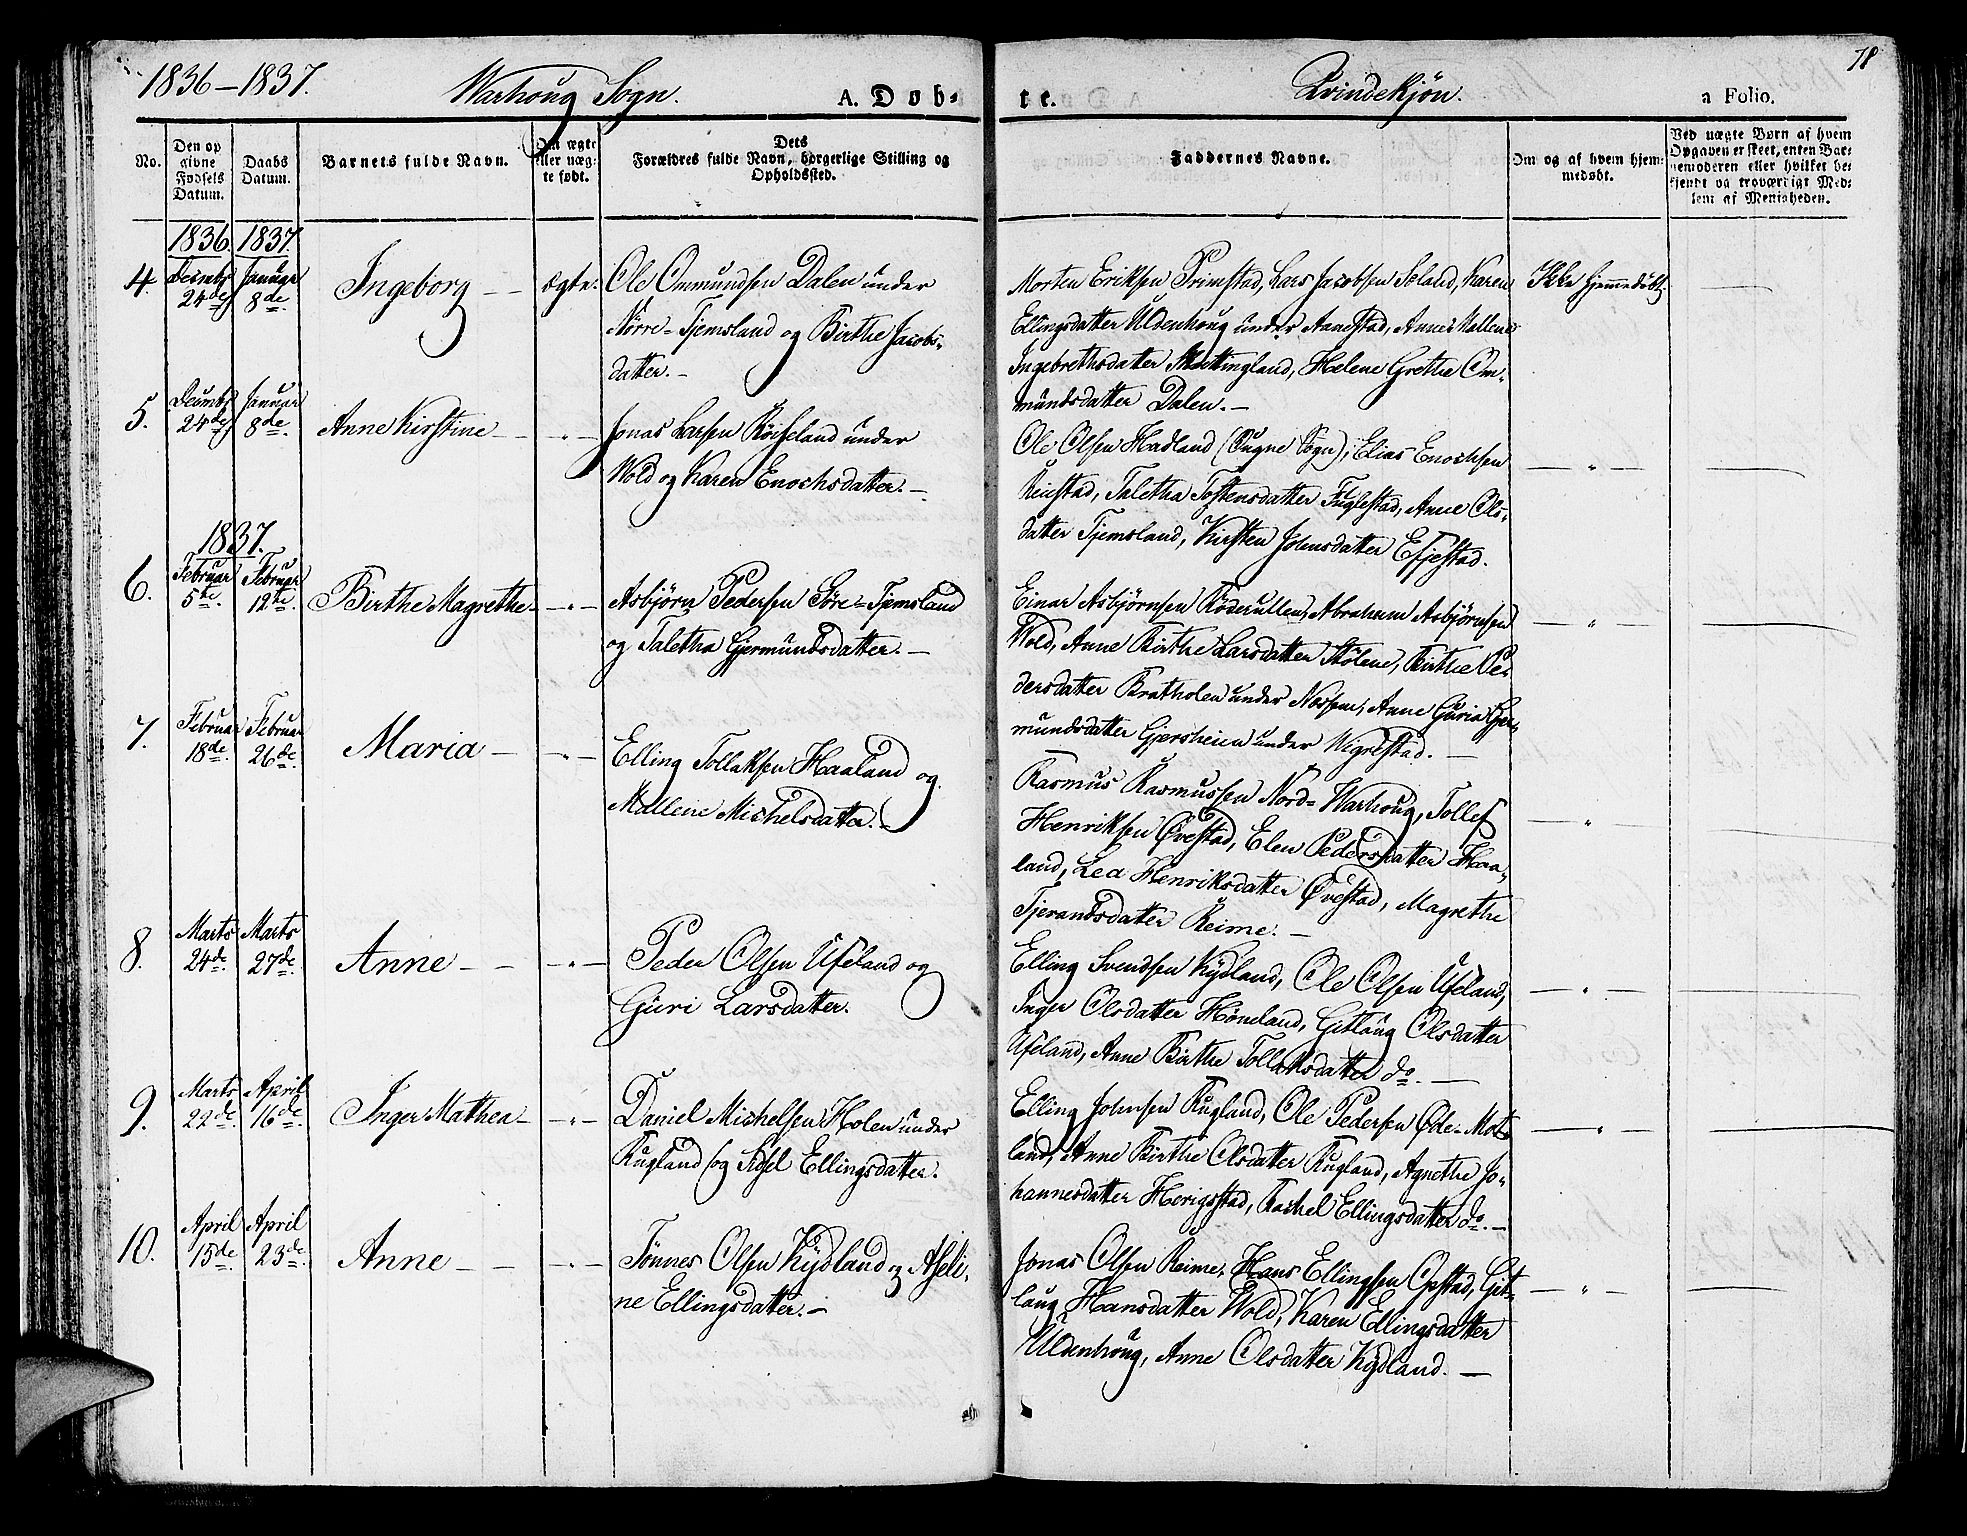 1836–1837.
Warhoug Sogn.
A. Døb-
te.
Qvindekjøn.
a Folio.
78
No.
Den op
givne
Fødsels
Datum.
Daabs
Datum.
Barnets fulde Navn.
Om ægte
eller uæg-
te født.
Dets
Forældres fulde Navn, borgerlige Stilling og
Opholdssted.
Faddernes Navne.
Om og af hvem hjem-
medøbt.
Ved uægte Børn af hvem
Opgaven er skeet, enten Bar-
nemoderen eller hvilket be-
kjendt og troværdigt Med-
lem af Menigheden.
1836. 1837.
4. Decembr 24de Januar 8de. Ingeborg — ægte. Ole Ommundsen Dalen under
Nörre-Tjemsland og Birthe Jacobs-
datter. —
Morten Eriksen Primstad, Lars Jacobsen Söland, Karen
Ellingsdatter Uldenhoug under Aanestad, Anne Mallene
Ingebrethsdatter Mottingland, Helene Grethe Om-
mundsdatter Dalen. —
Ikke hjemmedöbt. —
5. Decembr 24de Januar 8de. Anne Kirstine — „ — Jonas Larsen Röiseland under
Wold og Karen Enochsdatter. —
Ole Olsen Hadland (Ougne Sogn), Elias Enochsen
Reiestad, Taletha Tostensdatter Fuglestad, Anne Ols-
datter Tjemsland, Kirsten Johnsdatter Efjestad.
— „ — —
1837.
6. Februar 5te. Februar 12te. Birthe Magrethe — „ — Asbjörn Pedersen Söre-Tjemsland
og Taletha Gjermundsdatter. —
Einar Asbjörnsen Röderullen, Abraham Asbjörnsen
Wold, Anne Birthe Larsdatter Stölene, Birthe Pe-
dersdatter Bratholen under Nossen, Anne Guria Gjer-
mundsdatter Gjersheien under Wigrestad. —
— „ — —
7. Februar 18de. Februar 26de. Maria — „ — Elling Tollaksen Haaland og
Mallene Michelsdatter. —
Rasmus Rasmussen Nord-Warhoug, Tollef
Henriksen Øvestad, Elen Pedersdatter Haa-
land, Lea Henriksdatter Øvestad, Magrethe
Tjerandsdatter Reime. —
— „ — —
8. Marts 24de. Marts 27de. Anne — — „ — Peder Olsen Ueland og
Guri Larsdatter.
Elling Svendsen Kydland, Ole Olsen Ueland,
Inger Olsdatter Höneland, Gitlaug Olsdatter
Ueland, Anne Birthe Tollaksdatter do. —
— „ — —
9. Marts 22de. April 16de. Inger Mathea — „ — Daniel Michelsen Holen under
Rugland og Sidsel Ellingsdatter.
Elling Johnsen Rugland, Ole Pedersen Øde-Mot-
land, Anne Birthe Olsdatter Rugland, Agnethe Jo-
hannesdatter Herigstad, Rachel Ellingsdatter do. —
— „ — —
10. April 15de. April 23de. Anne — — „ — Tönnes Olsen Kydland og Aseli-
ne Ellingsdatter. —
Jonas Olsen Reime, Hans Ellingsen Opstad, Git-
laug Hansdatter Wold, Karen Ellingsdatter
Uldenhoug, Anne Olsdatter Kydland. —
— „ — —